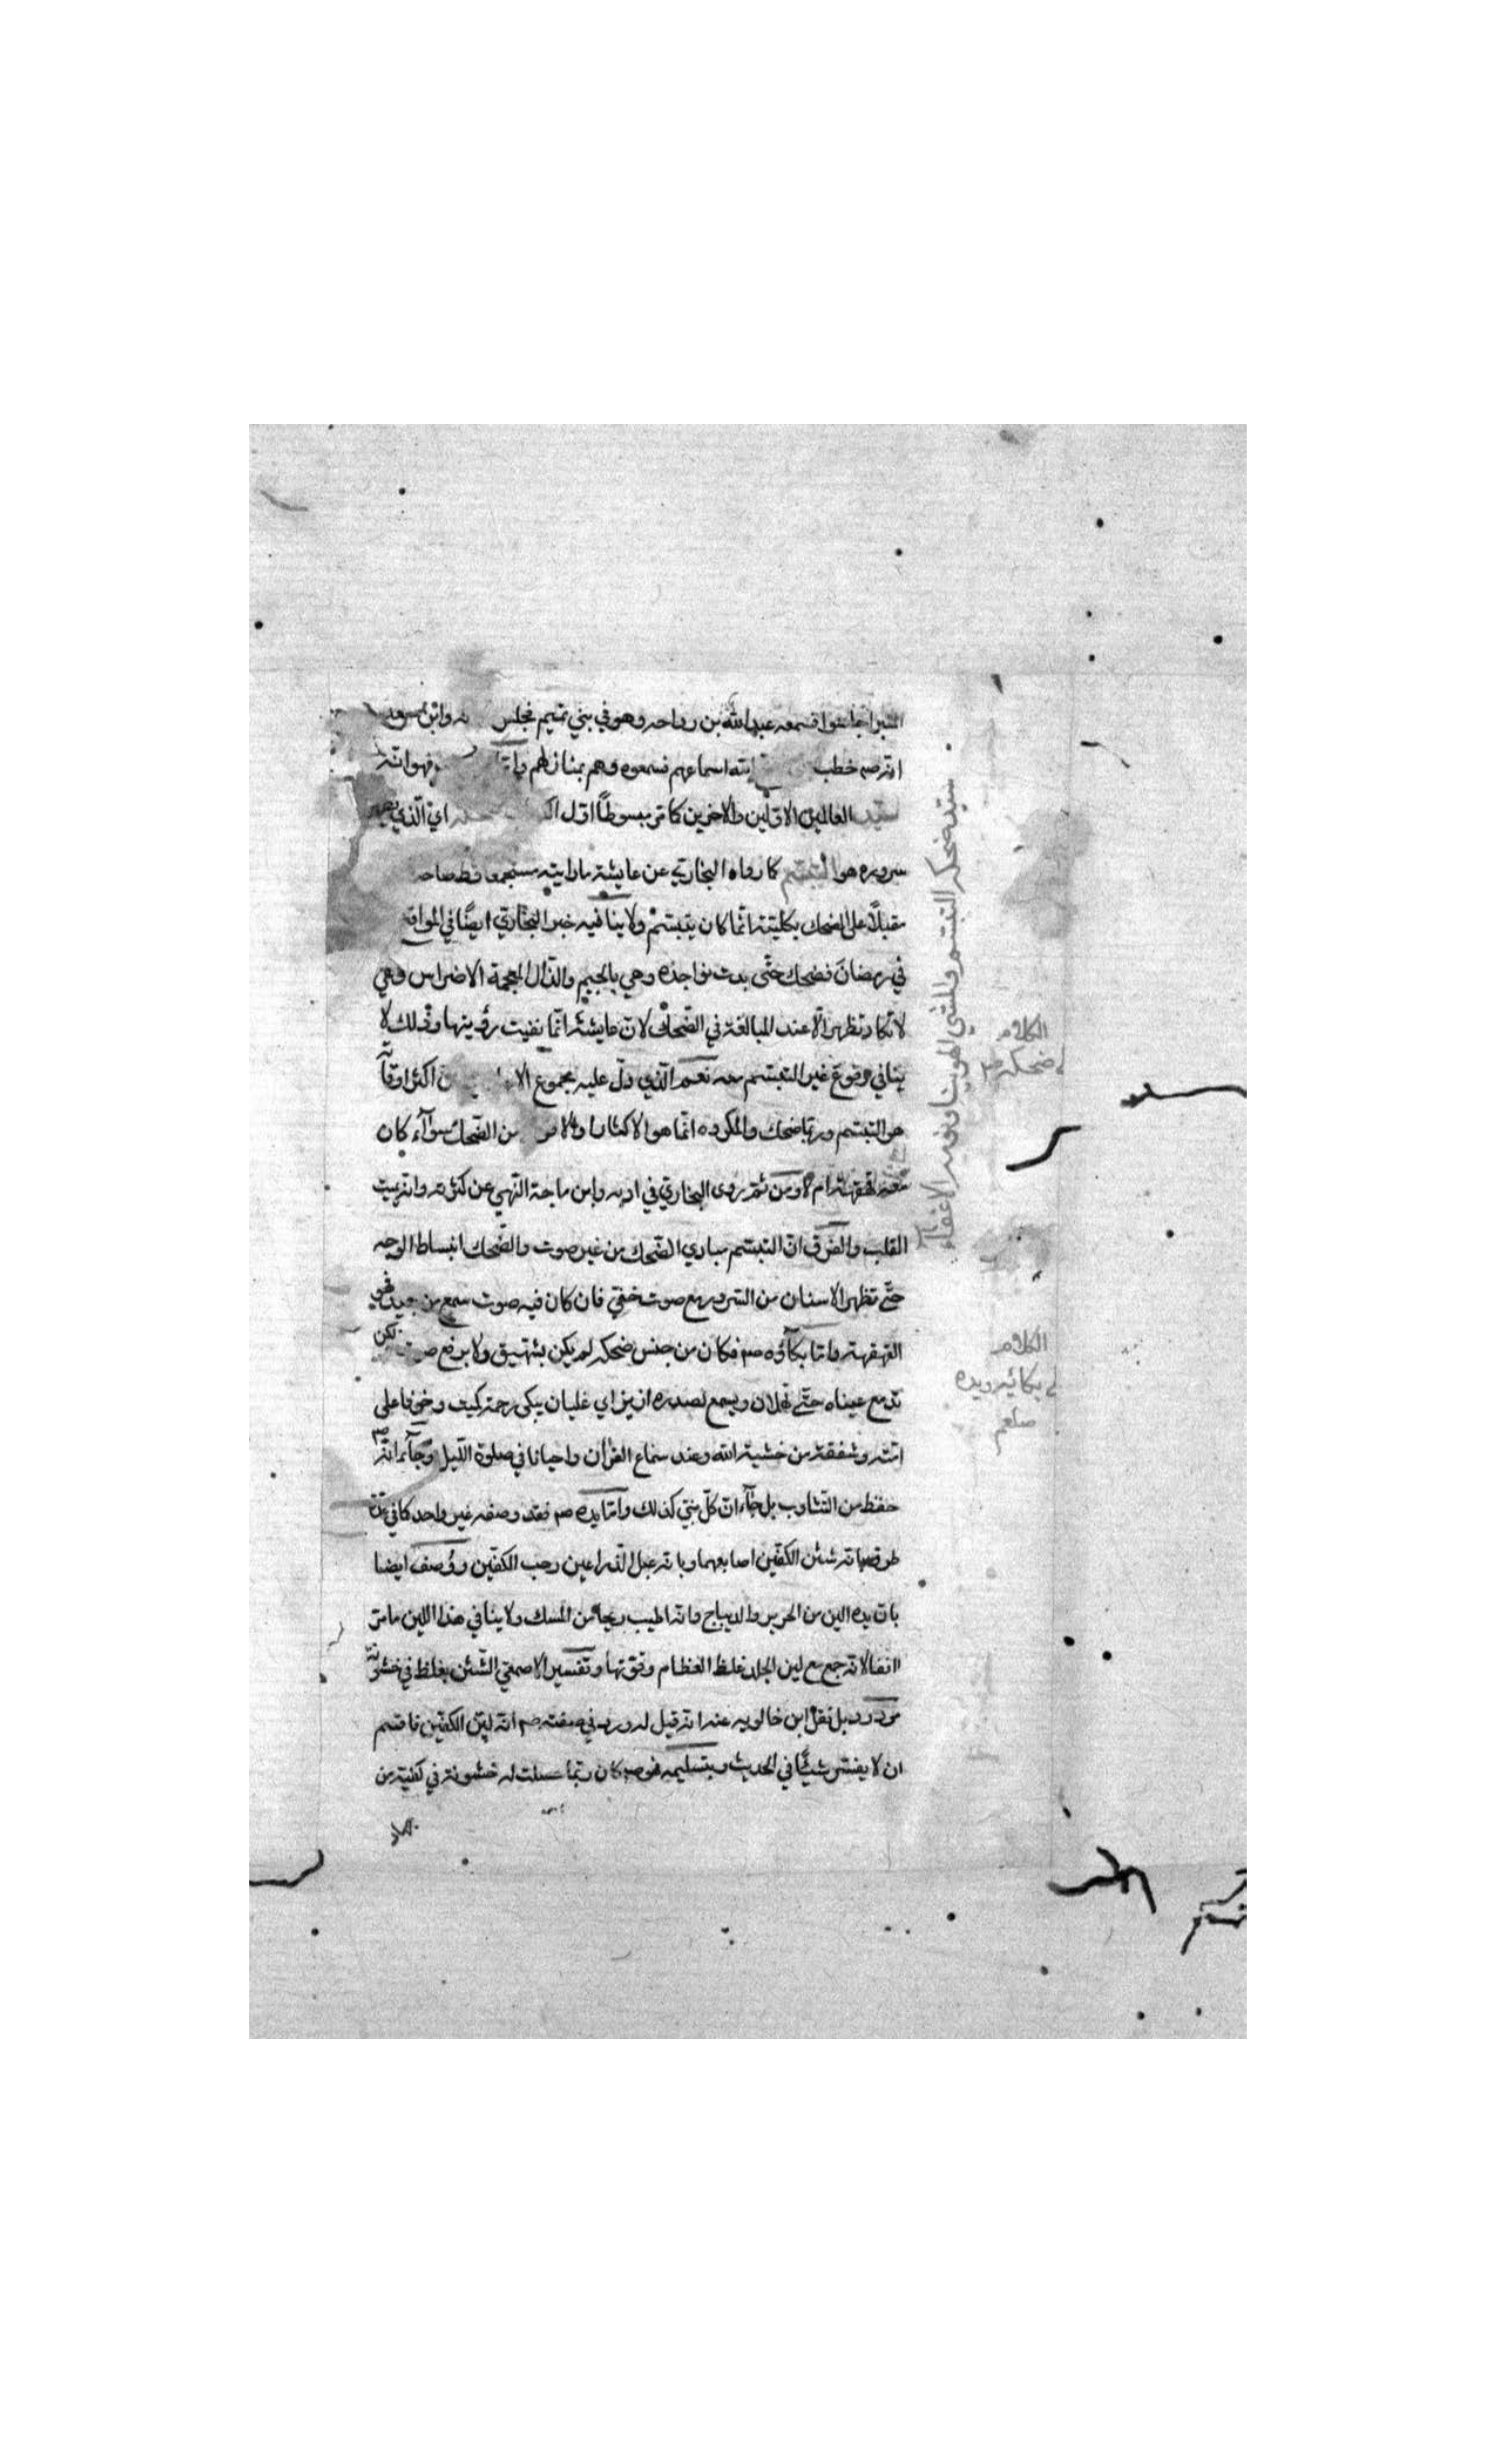 المنبر اجلسوا فسمعه عبد الله بن رواحه وهو في بني تميم فجلس وابن سعد
انه صم خطب الله اسماعهم فسمعوه وهم بمنازلهم واما فهو انه
سيد العالمين الاولين والاخرين كما مر مبسوطا اول اي الذي
سروره هو التبسم كما رواه البخاري عن عايشة ما رايته مستجمعا قط ضاحكا
مقبلاً على الضحك بكليته انما كان يتبسم ولا ينافيه خبر البخاري ايضًا في المواقع
في رمضان فضحك حتى بدت نواجذه وهي بالجيم والذال المعجمة الاضراس وهي
لا تكاد تظهر الا عند المبالغة في الضحك لان عايشة انما نفيت رؤيتها وذلك لا
ينافي وقوع غير التبسم منه نعم الذي دل عليه مجموع الا ان اكثر اوقاته
هو التبسم وربما ضحك والمكروه انما هو الاكثار والا من الضحك سوآء كان
معه قهقهة ام لا ومن ثم روى البخاري في ادبه وابن ماجة النهي عن كثرته وانه يميت
القلب والفرق ان التبسم مبادي الضحك من غير صوت والضحك انبساط الوجه
حتى تظهر الاسنان من السرور مع صوت خفي فان كان فيه صوت سمع من بعيد فهو
القهقهة واما بكآؤه صم فكان من جنس ضحكه لم يكن بشهيق ولا برفع صوت لكن
تدمع عيناه حتى تهملان ويسمع لصدره ازيز اي غليان يبكي رحمة لميت وخوفا على
امته وشفقة من خشية الله وعند سماع القرأن واحيانا في صلوة الليل وجآء انه صم
حفظ من التثاوب بل جآء ان كل نبي كذلك واما يده صم فقد وصفه غير واحد كما في عدة
طرق بانه شثن الكفين اي اصابعهما وبانه عبل الذراعين رحب الكفين ووُصف ايضا
بان يده الين من الحرير والديباج وانه اطيب ريحا من المسك ولا ينافي هذا اللين ما مر
انفا لانه جمع مع لين الجلد غلظ العظام وقوتها وتفسير الاصمعي الشثن بغلظ في خشونة
مردود بل نقل ابن خالويه عنه انه قيل له ورد في صفته صم انه لين الكفين فاقسم
ان لا يفسر شيئًا في الحديث وبتسليمه فهو صم كان ربما حصلت له خشونة في كفيه من
سيد ضحكه التبسم والمشي الهوينا ونومه الاغفاء
الكلام
في ضحكه صم
الكلام
في بكائه ويده
صلعم